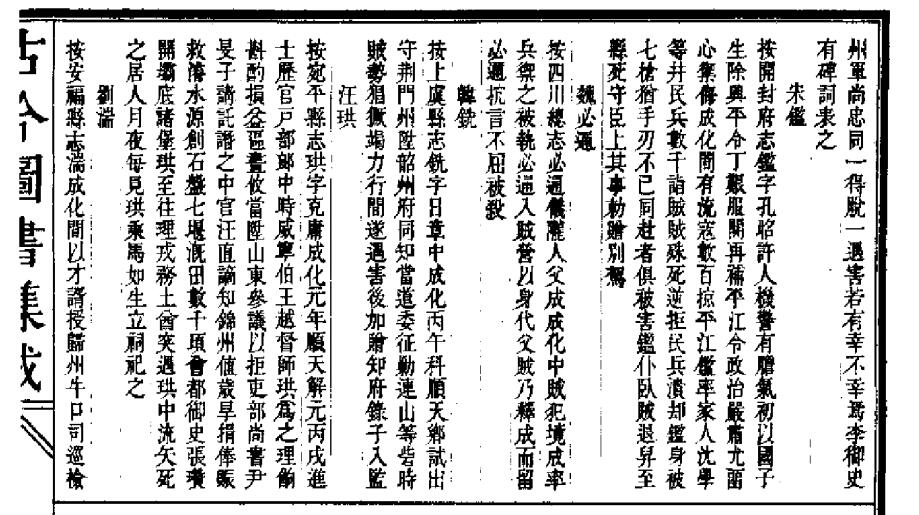 州軍尚忠同一得脫一遇害若有幸不幸焉李御史
有碑詞表之
朱鑑
按開封府志鑑字孔昭許人機警有膽氣初以國子
生除興平令丁艱服闋再補平江令政治嚴肅尤留
心禦侮成化間有流寇數百掠平江鑑率家人沈學
等幷民兵數千詣賊賊殊死逆拒民兵潰却鑑身被
七槍猶手刃不已同赴者俱被害鑑仆臥賊退舁至
縣死守臣上其事勅贈別駕
魏必通
按四川總志必通儀隴人父成成化中賊犯境成率
兵禦之被執必通入賊營以身代父賊乃釋成而留
必通抗言不屈被殺
韓銑
按上虞縣志銑字日章中成化丙午科順天鄉試出
守荆門州陞韶州府同知當道委征勦連山等砦時
賊勢猖獗竭力行間遂遇害後加贈知府錄子入監
汪珙
按宛平縣志珙字克庸成化元年順天解元丙戌進
士歷官戶部郎中時威寧伯王越督師珙爲之理餉
斟酌損益區畫攸當陞山東參議以拒吏部尚書尹
旻子請託譖之中官汪直謫知錦州値歲旱捐俸賑
救濬水源創石盤七堰漑田數千頃會都御史張瓚
開壩底諸堡珙至往理戎務土酋突遇珙中流矢死
之居人月夜每見珙乘馬如生立祠祀之
劉湍
按安福縣志湍成化間以才諝授歸州牛口司巡檢
古今圖書集成